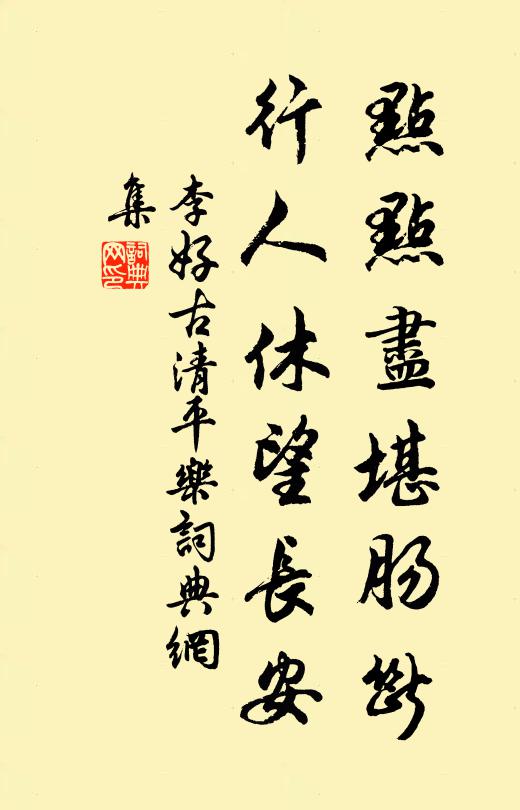 點點盡堪腸斷
行人休望長安
李好古清平樂詞典網
集
詞典
网印